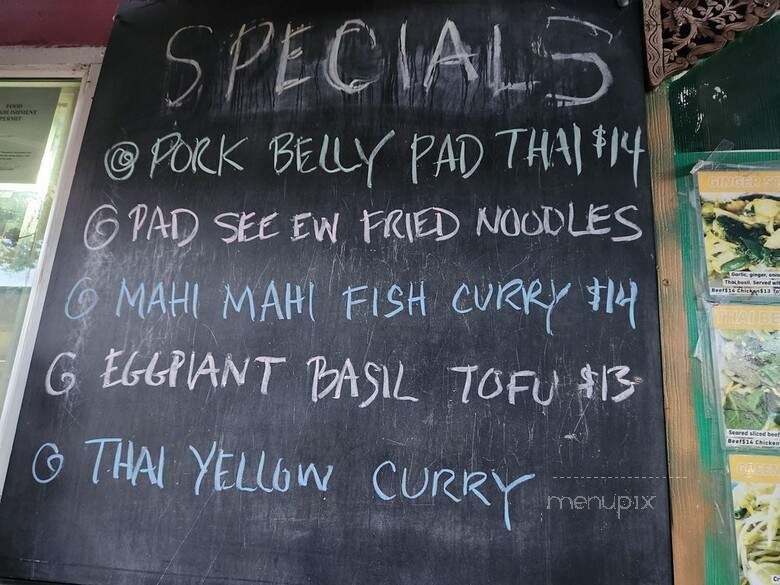 SPECIALS
PORK BELLY PAD THAI $14
PAD SEE EW FRIED NOODLES
MAHI MAHI FISH CURRY $14
EGGPIANT BASIL TOFU $13
THAI YELLOW CURRY
menupix
FOOD
PERMIT
GINGER
Garlic, ginger, onion
Thai basil. Served wit
Beef$14 Chicken$13 To
THAI B
Seared sliced beef
Beef$14 Chicken